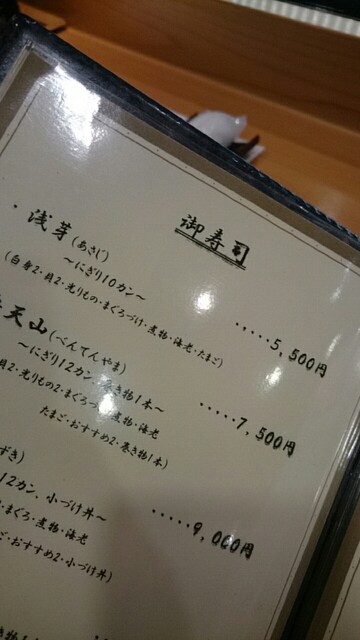 御寿司
・浅芽(あさじ)
～にぎり10カン～
(白身2・貝2・光りもの・まぐろづけ・煮物・海老・たまご)
・・・・・5,500円
天山(べんてんやま)
～にぎり12カン、巻き物1本～
貝2・光りもの2・まぐろ 煮物・海老
たまご・おすすめ2・巻き物1本)
・・・・・7,500円
ずき)
12カン、小づけ丼～
・まぐろ・煮物・海老
ご・おすすめ2・小づけ丼)
・・・・・9,000円